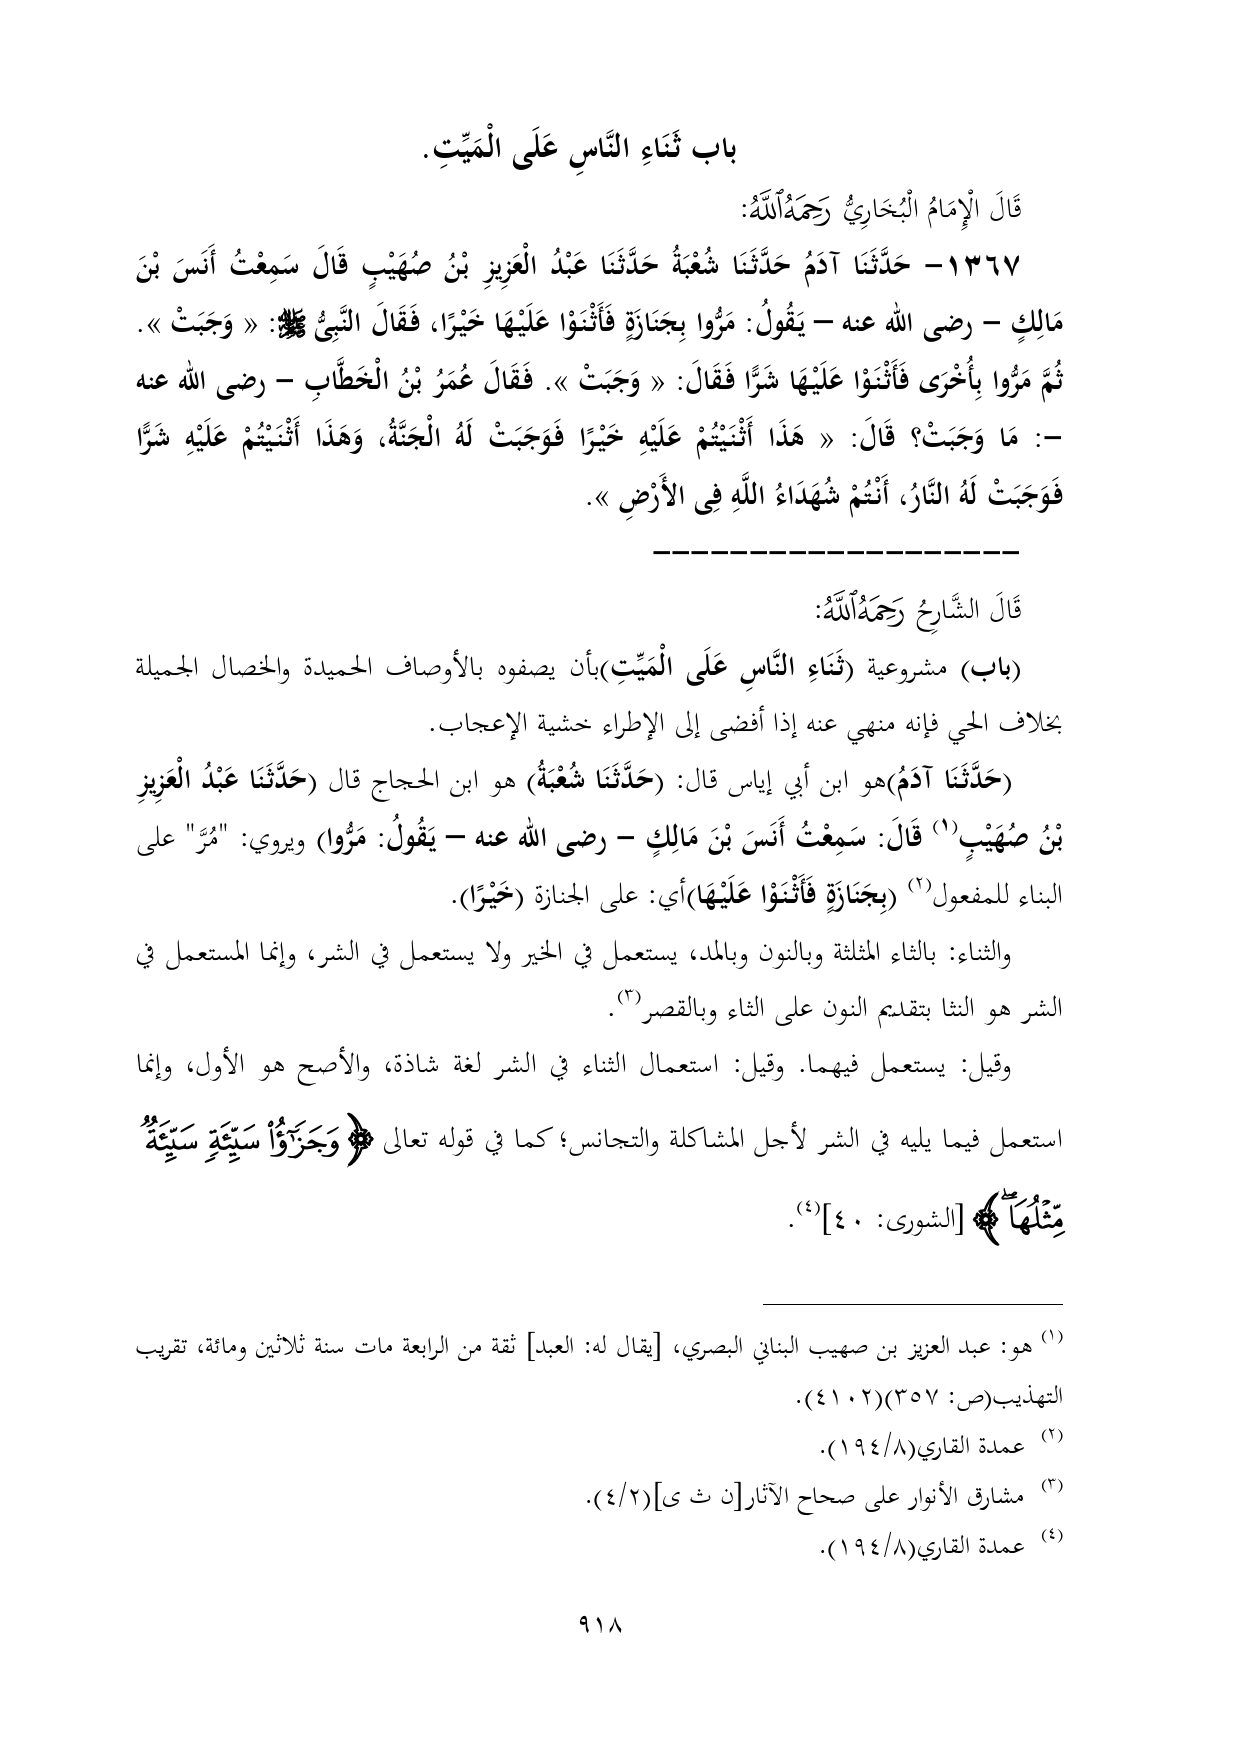 باب ثَنَاءِ النَّاسِ عَلَى الْمَيِّتِ.
قَالَ الْإِمَامُ الْبُخَارِيُّ رَحِمَهُ ٱللَّهُ:
١٣٦٧- حَدَّثَنَا آدَمُ حَدَّثَنَا شُعْبَةُ حَدَّثَنَا عَبْدُ الْعَزِيزِ بْنُ صُهَيْبٍ قَالَ سَمِعْتُ أَنَسَ بْنَ
مَالِكٍ – رضى الله عنه – يَقُولُ: مَرُّوا بِجَنَازَةٍ فَأَثْنَوْا عَلَيْهَا خَيْرًا، فَقَالَ النَّبِىُّ ﷺ: « وَجَبَتْ ».
ثُمَّ مَرُّوا بِأُخْرَى فَأَثْنَوْا عَلَيْهَا شَرًّا فَقَالَ: « وَجَبَتْ ». فَقَالَ عُمَرُ بْنُ الْخَطَّابِ – رضى الله عنه
–: مَا وَجَبَتْ؟ قَالَ: « هَذَا أَثْنَيْتُمْ عَلَيْهِ خَيْرًا فَوَجَبَتْ لَهُ الْجَنَّةُ، وَهَذَا أَثْنَيْتُمْ عَلَيْهِ شَرًّا
فَوَجَبَتْ لَهُ النَّارُ، أَنْتُمْ شُهَدَاءُ اللَّهِ فِى الأَرْضِ ».
–––––––––––––––––––
قَالَ الشَّارِحُ رَحِمَهُ ٱللَّهُ:
(باب) مشروعية (ثَنَاءِ النَّاسِ عَلَى الْمَيِّتِ)بأن يصفوه بالأوصاف الحميدة والخصال الجميلة
بخلاف الحي فإنه منهي عنه إذا أفضى إلى الإطراء خشية الإعجاب.
(حَدَّثَنَا آدَمُ)هو ابن أبي إياس قال: (حَدَّثَنَا شُعْبَةُ) هو ابن الحجاج قال (حَدَّثَنَا عَبْدُ الْعَزِيزِ
بْنُ صُهَيْبٍ(١) قَالَ: سَمِعْتُ أَنَسَ بْنَ مَالِكٍ – رضى الله عنه – يَقُولُ: مَرُّوا) ويروي: "مُرَّ" على
البناء للمفعول(٢) (بِجَنَازَةٍ فَأَثْنَوْا عَلَيْهَا)أي: على الجنازة (خَيْرًا).
والثناء: بالثاء المثلثة وبالنون وبالمد، يستعمل في الخير ولا يستعمل في الشر، وإنما المستعمل في
الشر هو النثا بتقديم النون على الثاء وبالقصر(٣).
وقيل: يستعمل فيهما. وقيل: استعمال الثناء في الشر لغة شاذة، والأصح هو الأول، وإنما
استعمل فيما يليه في الشر لأجل المشاكلة والتجانس؛ كما في قوله تعالى ﴿ وَجَزَٰٓؤُا۟ سَيِّئَةٍۢ سَيِّئَةٌۭ
مِّثْلُهَا ۖ﴾ [الشورى: ٤٠](٤).
(١) هو: عبد العزيز بن صهيب البناني البصري، [يقال له: العبد] ثقة من الرابعة مات سنة ثلاثين ومائة، تقريب
التهذيب(ص: ٣٥٧)(٤١٠٢).
(٢) عمدة القاري(١٩٤/٨).
(٣) مشارق الأنوار على صحاح الآثار[ن ث ى](٤/٢).
(٤) عمدة القاري(١٩٤/٨).
٩١٨